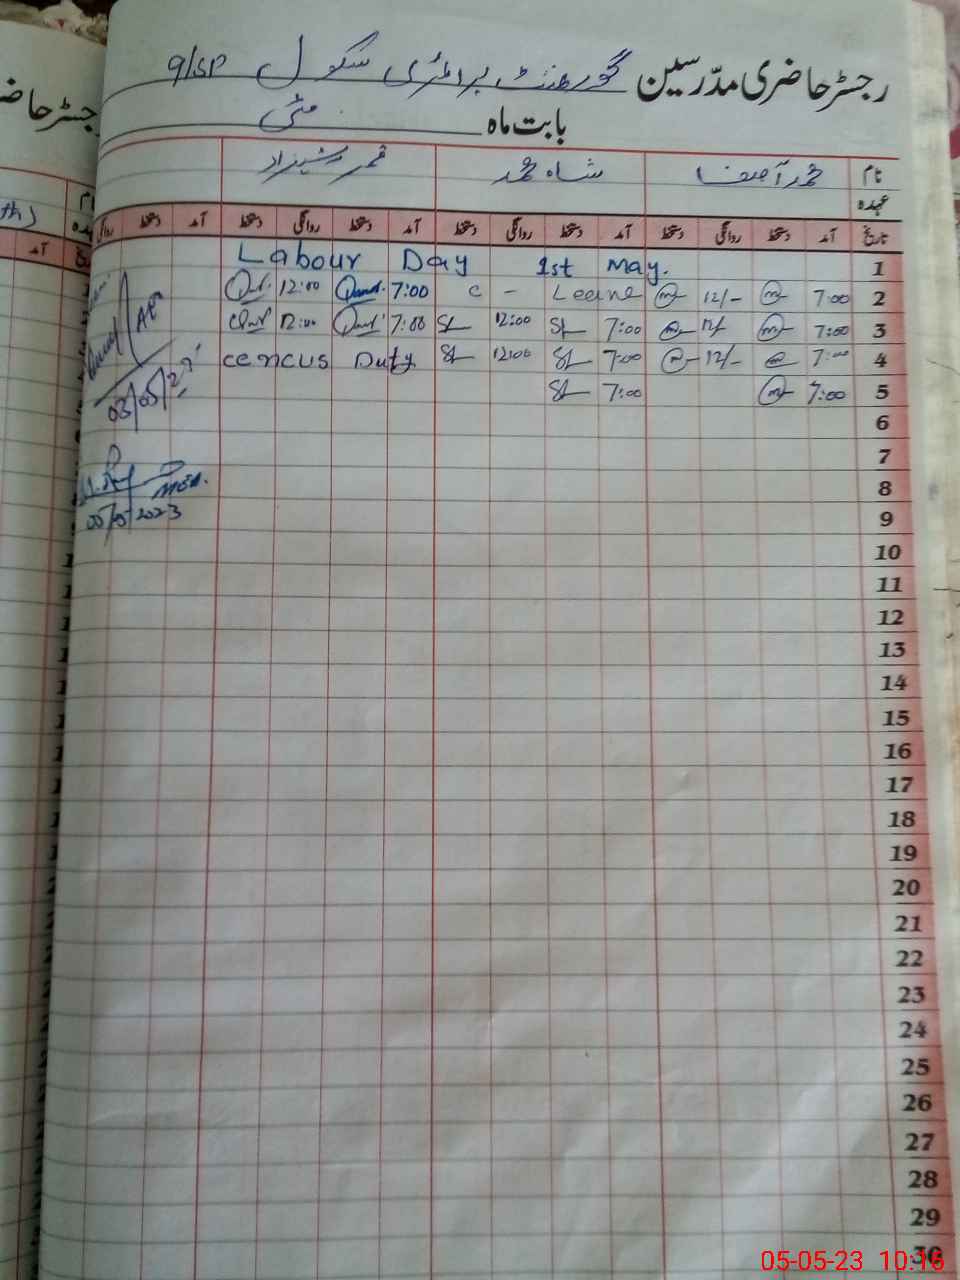 رجسٹر حاضری مدّرسین گورنمنٹ پرائمری سکول 9/SP
بابت ماہ مئی
نام محمد آصف شاہ محمد قمر شہزاد
عہدہ
تاریخ آمد دستخط روانگی دستخط آمد دستخط روانگی دستخط آمد دستخط روانگی دستخط آمد دستخط
Labour Day 1st May. 1
12:00 7:00 C - Leave 12/- 7:00 2
12:00 7:00 SL 12:00 SL 7:00 12/ 7:00 3
cencus Duty SL 12:00 SL 7:00 12/- 7:00 4
SL 7:00 7:00 5
6
7
8
9
10
11
12
13
14
15
16
17
18
19
20
21
22
23
24
25
26
27
28
29
30
AEO
03/05/23
05/05/2023
05-05-23 10:16